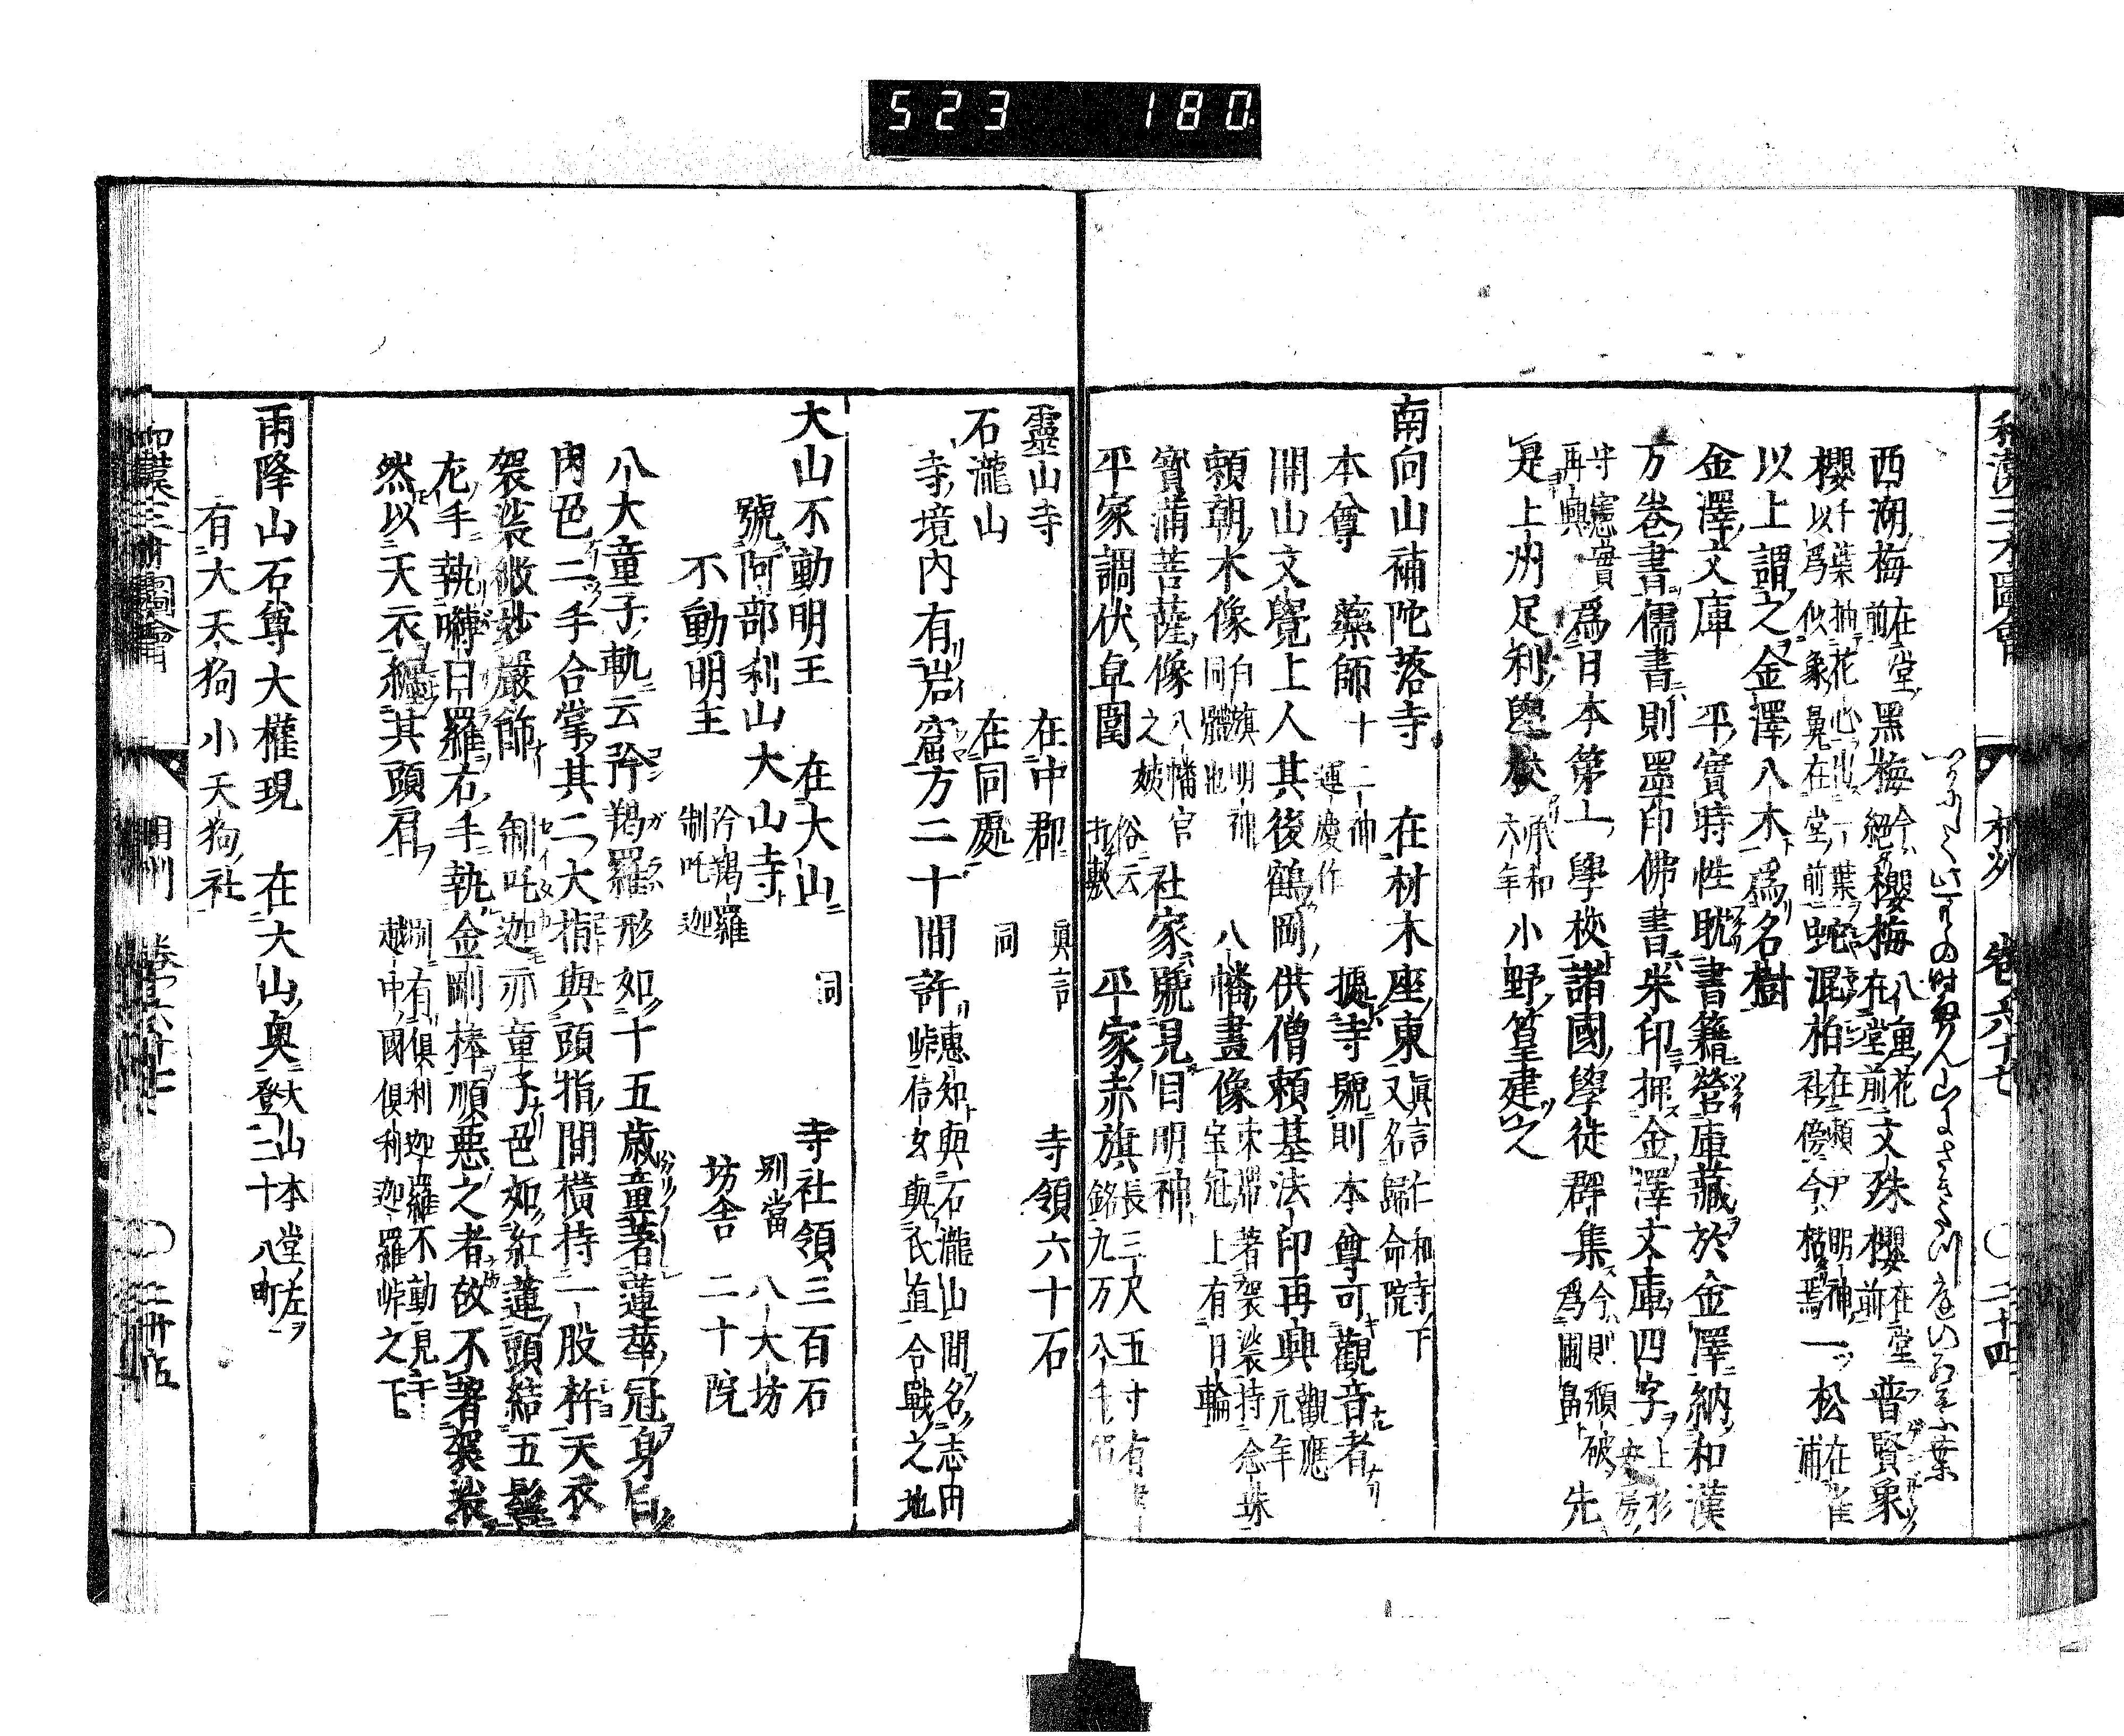 523 180
和漢三才圖會 相州 卷六十七 ○二十四
西湖梅在堂前黑梅今絕櫻梅八重花在堂前文殊櫻在堂前普賢象
櫻千葉抽花心出一葉以爲似象鼻在堂前蛇混柏在瀬戸明神社傍今枯焉一松在雀浦
以上謂之金澤八木爲名樹
金澤文庫 平實時性耽書籍營庫藏於金澤納和漢
万卷書儒書則墨印佛書朱印捺金澤文庫四字上杉安房
守憲實再興爲日本第一學校諸國學徒群集今則頽破爲圃畠先
是上州足利學校承和六年小野篁建之
南向山補陀落寺 在材木座東眞言仁和寺下又名歸命院
本尊 藥師十二神運慶作 據寺號則本尊可觀音者
開山文覺上人其後鶴岡供僧賴基法印再興觀應元年
賴朝木像白旗明神同體也 八幡畫像束帶著袈裟持念珠宝冠上有日輪
寶蒲菩薩像八幡官之婇 社家號見目明神
平家調伏卓圍俗云打敷 平家赤旗長三尺五寸有銘九万八千
靈山寺 在中郡 眞言 寺領六十石
石瀧山 在同處 同
寺境内有岩窟方二十間許惠知與石瀧山間名志由峠信女與氏直合戰之地
大山不動明王 在大山 同 寺社領三百石
號阿部利山大山寺 別當 八大坊
不動明王 矜羯羅制吒迦 坊舍 二十院
八大童子軌云矜羯羅形如十五歳童著蓮華冠身白
肉色二手合掌其二大指與頭指間橫持一股杵天衣
袈裟微妙嚴飾 制吒迦亦童子色如紅蓮頭結五髻
左手執嚩日羅右手執金剛棒順惡之者故不著袈裟
然以天衣纏其頭肩 別有倶利迦羅不動見于越中國倶利迦羅峠之下
雨降山石尊大權現 在大山奥大山本堂左ヲ登二十八町
有大天狗小天狗社
和漢三才圖會 相州 卷之六十七